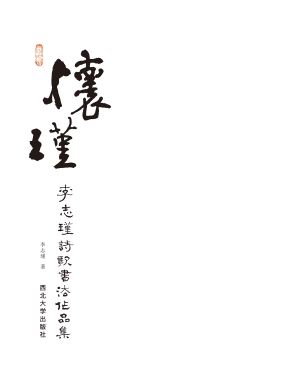 懷瑾
李志瑾詩歌書法作品集
李志瑾 著
西北大学出版社